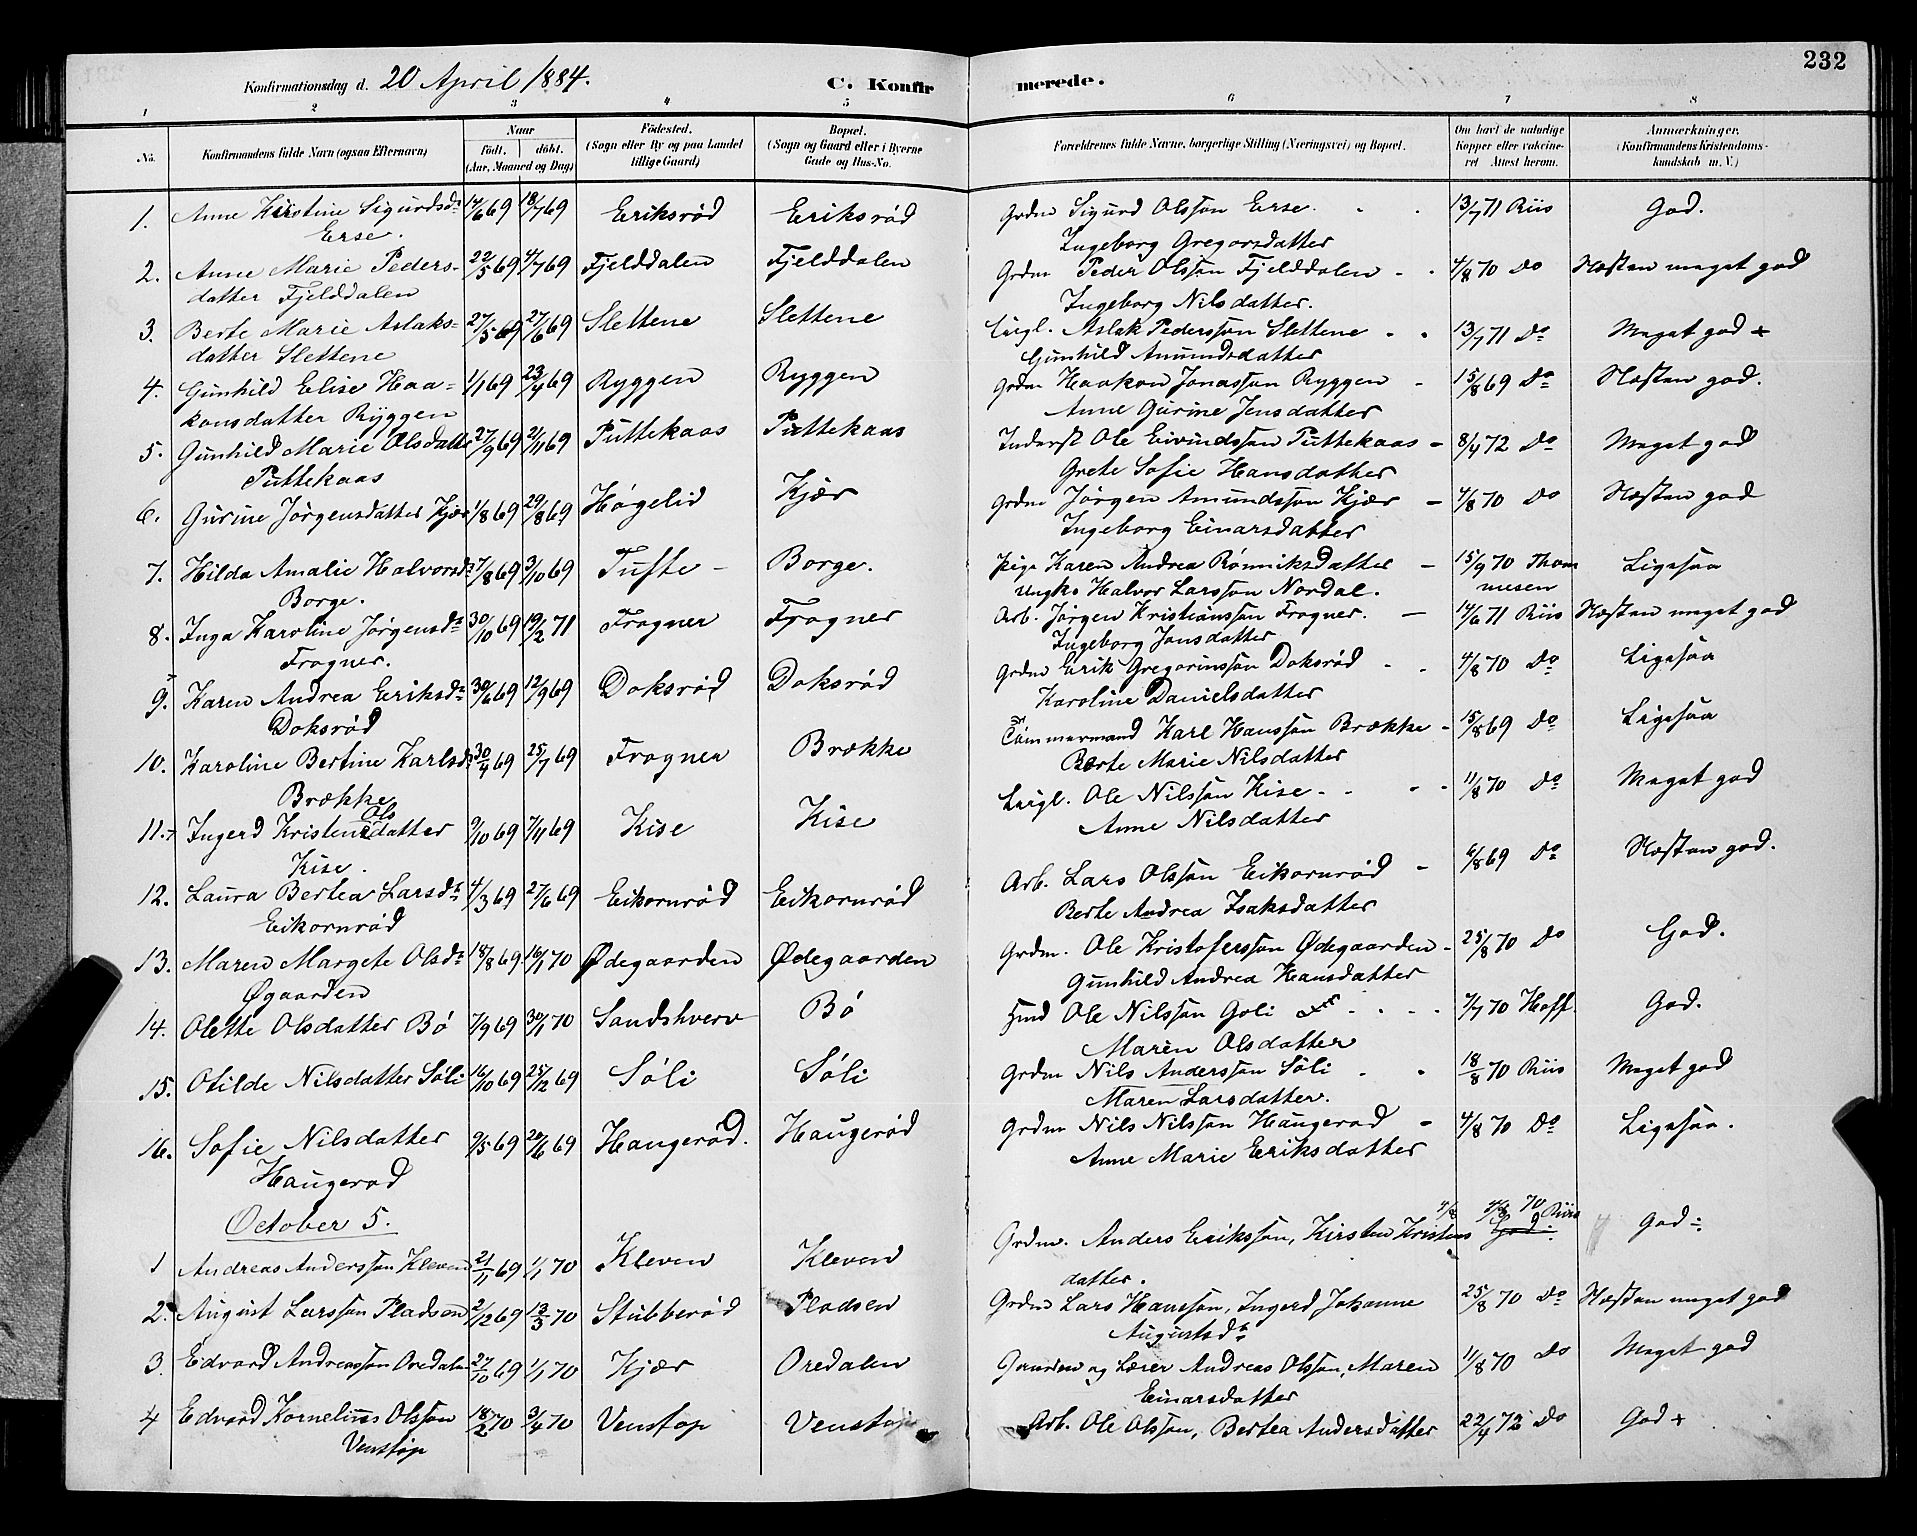 232
Konfirmationsdag d. 20 April 1884. C. Konfirmerede.
1 2 3 4 5 6 7 8
No. Konfirmandens fulde Navn (ogsaa Efternavn) Naar Født. døbt. (Aar, Maaned og Dag) Fødested. (Sogn eller By og paa Landet tillige Gaard) Bopæl. (Sogn og Gaard eller i Byerne Gade og Hus-No. Forældrenes fulde Navne, borgerlige Stilling (Næringsvei) og Bopæl. Om havt de naturlige Kopper eller vakcineret Attest herom. Anmærkninger. (Konfirmandens Kristendomskundskab m. V.)
1. Anne Kirstine Sigurdsdr 14/6 69 18/7 69 Eriksrød Eriksrød Grdm Sigurd Olsson Erse. 13/7 71 Riis God.
Erse. Ingeborg Gregorsdatter
2. Anne Marie Peders- 22/5 69 4/7 69 Fjelddalen Fjelddalen Grdm Peder Olsson Fjelddalen 4/8 70 Do Næsten meget god
datter Fjelddalen Ingeborg Nilsdatter.
3. Berte Marie Aslaks- 27/5 69 27/6 69 Slettene Slettene Leigl. Aslak Pedersson Slettene 13/7 71 Do Meget god +
datter Slettene Gunhild Amundsdatter
4. Gunhild Elise Haa- 1/1 69 23/4 69 Ryggen Ryggen Grdm Haakon Jonasson Ryggen 15/8 69 Do Næsten god.
konsdatter Ryggen Anne Gurine Jensdatter
5. Gunhild Marie Olsdatter 27/9 69 21/11 69 Puttekaas Puttekaas Inderst Ole Eivindsson Puttekaas 8/4 72 Do Meget god
Puttekaas Grete Sofie Hansdatter
6. Gurine Jørgensdatter Kjær 1/8 69 29/8 69 Høgelid Kjær Grdm Jørgen Amundsson Kjær 4/8 70 Do Næsten god
Ingeborg Einarsdatter
7. Hilda Amalie Halvorsdr 7/8 69 3/10 69 Tufte Borge. Pige Karen Andrea Rønniksdatter 15/9 70 Thom
Borge. Ungk. Halvor Larsson Nordal. mesen Ligesaa
8. Inga Karoline Jørgensdr 30/10 69 19/2 71 Frogner Frogner Arb. Jørgen Kristiansson Frogner. 14/6 71 Riis Næsten meget god
Frogner. Ingeborg Jonsdatter
9. Karen Andrea Eriksdr 30/6 69 12/9 69 Doksrød Doksrød Grdm Erik Gregoriusson Doksrød 4/8 70 Do Ligesaa
Doksrød Karoline Danielsdatter
10. Karoline Bertine Karlsdr 30/4 69 25/7 69 Frogner Brække Tømmermand Karl Hansson Brække 15/8 69 Do Ligesaa
Brække Berte Marie Nilsdatter
11. Ingerd Kristine Olsdatter 9/10 69 7/11 69 Kise Kise Leigl. Ole Nilsson Kise 11/8 70 Do Meget god
Kise. Anne Nilsdatter
12. Laura Bertea Larsdr 4/3 69 27/6 69 Eikornrød Eikornrød Arb. Lars Olsson Eikornrød 6/8 69 Do Næsten god.
Eikornrød Berte Andrea Isaksdatter
13. Maren Margete Olsdr 18/8 69 16/1 70 Ødegaarden Ødegaarden Grdm. Ole Kristofersson Ødegaarden 25/8 70 Do God.
Øgaarden Gunhild Andrea Hansdatter
14. Olette Olsdatter Bø 7/9 69 30/1 70 Sandshverv Bø Hmd Ole Nilsson Goli 7/7 70 Hoff. God.
Maren Olsdatter
15. Otilde Nilsdatter Søli 16/10 69 25/12 69 Søli Søli Grdm Nils Andersson Søli 18/8 70 Riis Meget god
Maren Larsdatter.
16. Sofie Nilsdatter 9/5 69 20/6 69 Haugerød. Haugerød Grdm Nils Nilsson Haugerød 4/8 70 Do Ligesaa.
Haugerød Anne Marie Eriksdatter
October 5.
1 Andreas Andersson Kleven 21/11 69 1/1 70 Kleven Kleven Grdm. Anders Eriksson, Kirsten Kristens 4/8 70 Riis God
datter.
2. August Larsson Pladsen 2/12 69 13/3 70 Stubberød Pladsen Grdm Lars Hansson, Ingerd Johanne 25/8 70 Do Næsten meget god
Augustsdr
3. Edvard Andreasson Oredalen 27/10 69 1/1 70 Kjær Oredalen og Lærer Andreas Olsson, Maren 11/8 70 Do Meget god
Einarsdatter
4 Edvard Kornelius Olsson 18/2 70 3/4 70 Venstøp Venstøp Arb. Ole Olsson, Bertea Andersdatter 22/4 72 Do God +
Venstøp